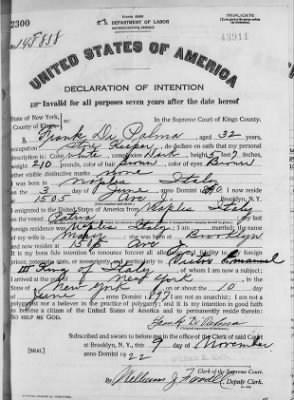 2300
Form 2203
U. S. DEPARTMENT OF LABOR
NATURALIZATION SERVICE
TRIPLICATE
No. 195838
43911
UNITED STATES OF AMERICA
DECLARATION OF INTENTION
Invalid for all purposes seven years after the date hereof
State of New York,
County of Kings,
In the Supreme Court of Kings County.
I, Frank De Palma, aged 32 years,
occupation Store Keeper, do declare on oath that my personal
description is: Color White, complexion Dark, height 5 feet 9 inches,
weight 210 pounds, color of hair Brown, color of eyes Brown
other visible distinctive marks none
I was born in Naples Italy
on the 3 day of June, anno Domini 1890; I now reside
at 1505 Ave Brooklyn, N. Y.
I emigrated to the United States of America from Naples Italy
on the vessel Patria; my last
foreign residence was Naples Italy; I am married; the name
of my wife is Mary; she was born in Brooklyn
and now resides at 1505 Ave J.
It is my bona fide intention to renounce forever all allegiance and fidelity to any foreign
prince, potentate, state, or sovereignty, and particularly to Victor Emanuel
III King of Italy, of whom I am now a subject; I
arrived at the port of New York, in the
State of New York, on or about the 10 day
of June, anno Domini 1897; I am not an anarchist; I am not a
polygamist nor a believer in the practice of polygamy; and it is my intention in good faith
to become a citizen of the United States of America and to permanently reside therein:
SO HELP ME GOD.
Frank De Palma
Subscribed and sworn to before me in the office of the Clerk of said Court
at Brooklyn, N. Y., this 9 day of November
anno Domini 1922
[SEAL]
Clerk of the Supreme Court.
By William J. Deputy Clerk.